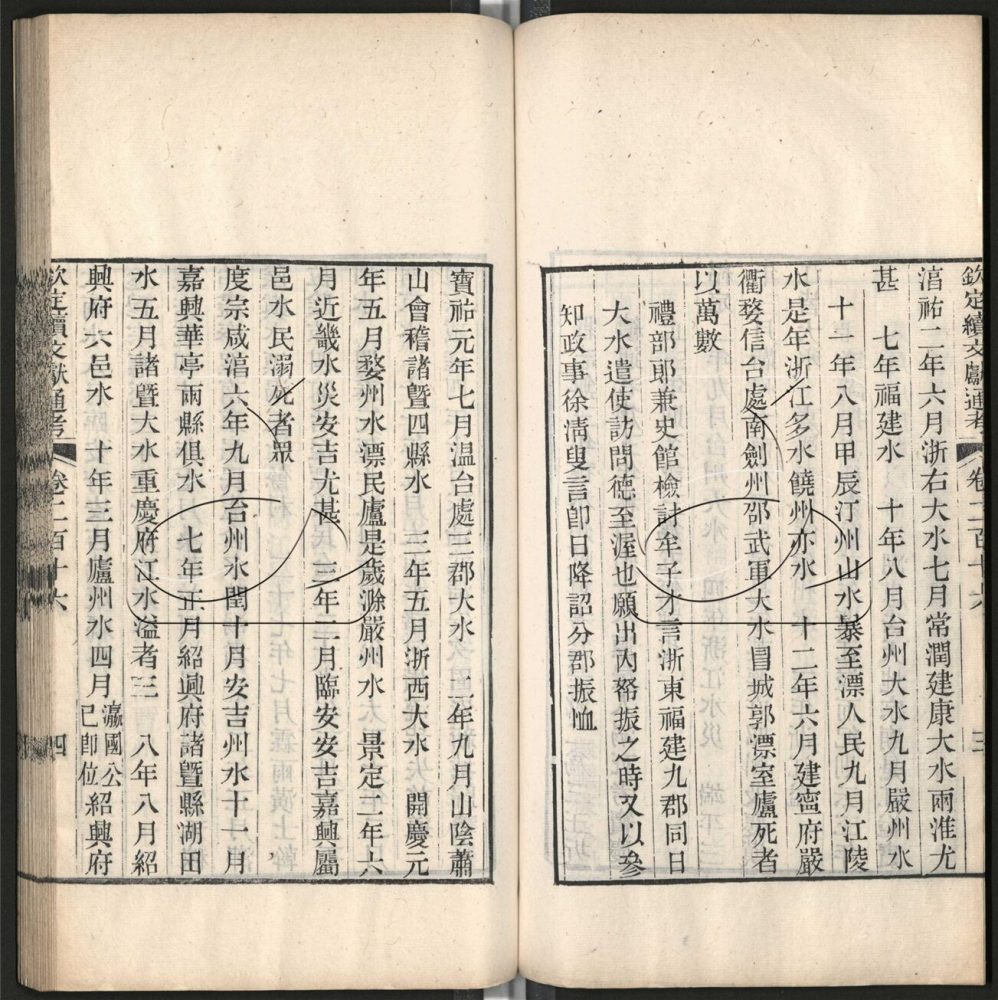 欽定續文獻通考 卷二百十六 三
淯祐二年六月浙右大水七月常潤建康大水兩淮尤
甚 七年福建水 十年八月台州大水九月嚴州水
十一年八月甲辰汀州山水暴至漂人民九月江陵
水是年浙江多水饒州亦水 十二年六月建寧府嚴
衢婺信台處南劍州邵武軍大水冒城郭漂室廬死者
以萬數
禮部郎兼史館檢討牟子才言浙東福建九郡同日
大水遣使訪問德至渥也願出內帑振之時又以參
知政事徐淸叟言卽日降詔分郡振恤
寶祐元年七月温台處三郡大水 二年九月山陰蕭
山會稽諸曁四縣水 三年五月浙西大水 開慶元
年五月婺州水漂民廬是歲滁嚴州水 景定二年六
月近畿水災安吉尤甚 三年二月臨安安吉嘉興屬
邑水民溺死者眾
度宗咸淯六年九月台州水閏十月安吉州水十一月
嘉興華亭雨縣俱水 七年正月紹興府諸曁縣湖田
水五月諸曁大水重慶府江水溢者三 八年八月紹
興府六邑水 十年三月廬州水四月瀛國公已卽位紹興府
欽定續文獻通考 卷二百十六 四